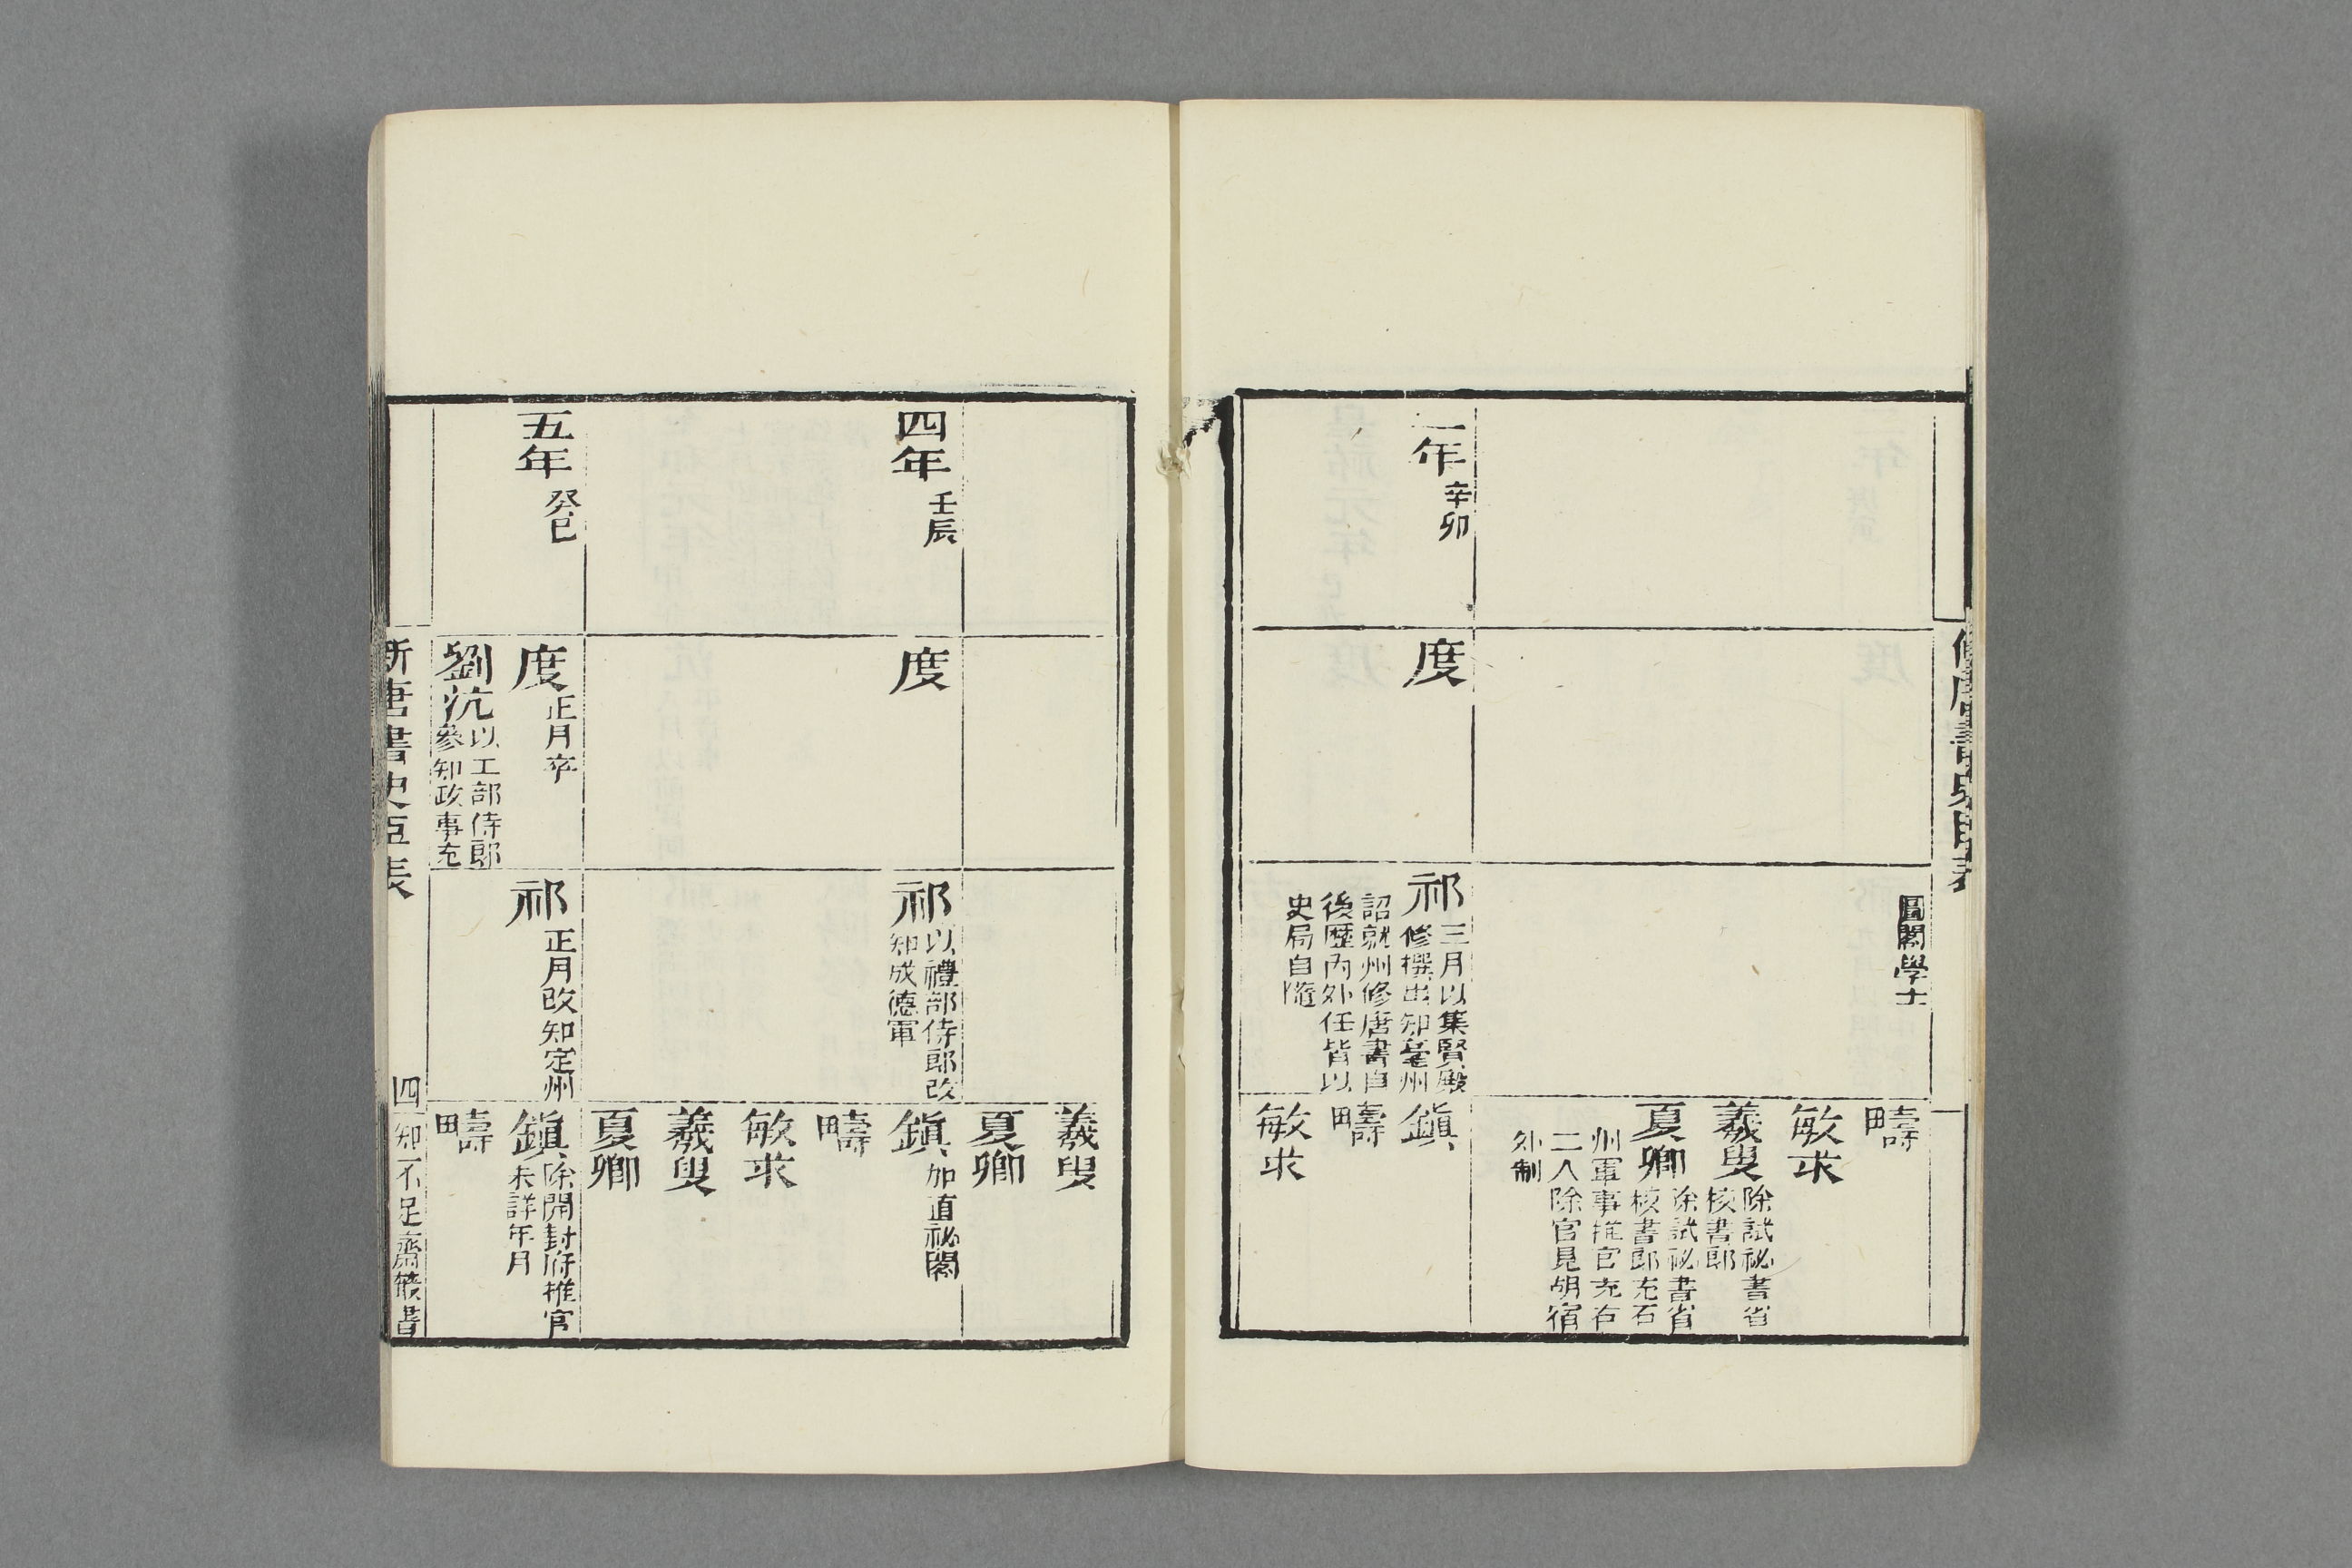 修唐書史臣表
圖閣學士
疇
敏求
羲叟 除試祕書省
校書郎
夏卿 除試祕書省
校書郎充石
州軍事推官充右
二人除官見胡宿
外制
年 辛卯
度
祁 三月以集賢殿
修撰出知亳州
詔就州修唐書自
後歷內外任皆以
史局自隨
鎮
疇
敏求
羲叟
夏卿
四年 壬辰
度
祁 以禮部侍郎改
知成德軍
鎮 加直祕閣
疇
敏求
羲叟
夏卿
五年 癸巳
度 正月卒
劉沆 以工部侍郎
參知政事充
祁 正月改知定州
鎮 除開封府推官
未詳年月
疇
新唐書史臣表
四
知不足齋叢書